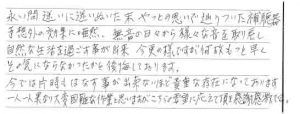 永い間迷いに迷いぬいた末 やっとの思いで辿りついた補聴器
予想外の効果に唖然。無音の日々から様々な音を取戻し
自然な生活を過ごす事が出来 今更の様ですが何故もっと早く
その気にならなかったかと後悔しております。
今では片時もはなす事が出来ないほど貴重な存在になっております
一人一人異なる大変困難な作業と思いますがこちらの要望に応えて頂き感謝感激です。